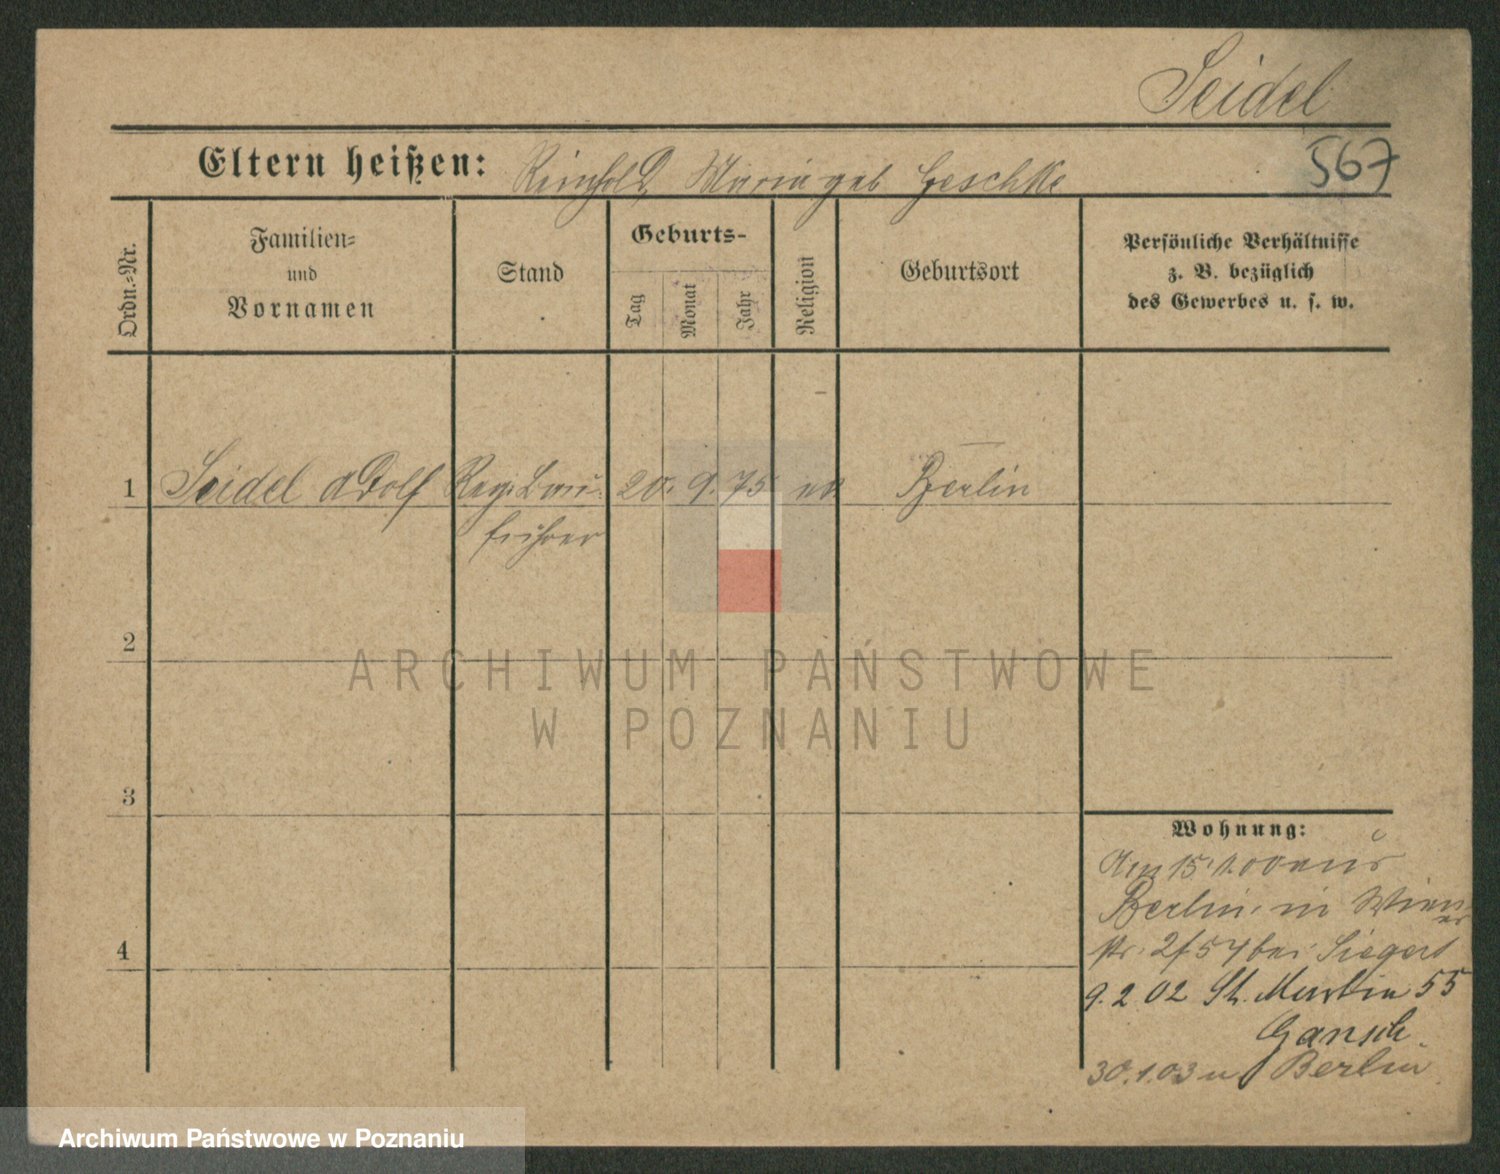 Seidel
567
Eltern heißen: Reinhold, Maria geb Geschke
Ordn.-Nr.
Familien-
und
Vornamen
Stand
Geburts-
Tag
Monat
Jahr
Religion
Geburtsort
Persönliche Verhältnisse
z. B. bezüglich
des Gewerbes u. s. w.
1 Seidel Adolf Reg. Bau- 20. 9. 75 Berlin
führer
2
ARCHIWUM PAŃSTWOWE
W POZNANIU
3
Wohnung:
Am 15. aus
Berlin, in Wiener
str. bei Siegert
4
9. 2 02 St. Martin 55
Gansch
30. 1. 03 n Berlin
Archiwum Państwowe w Poznaniu